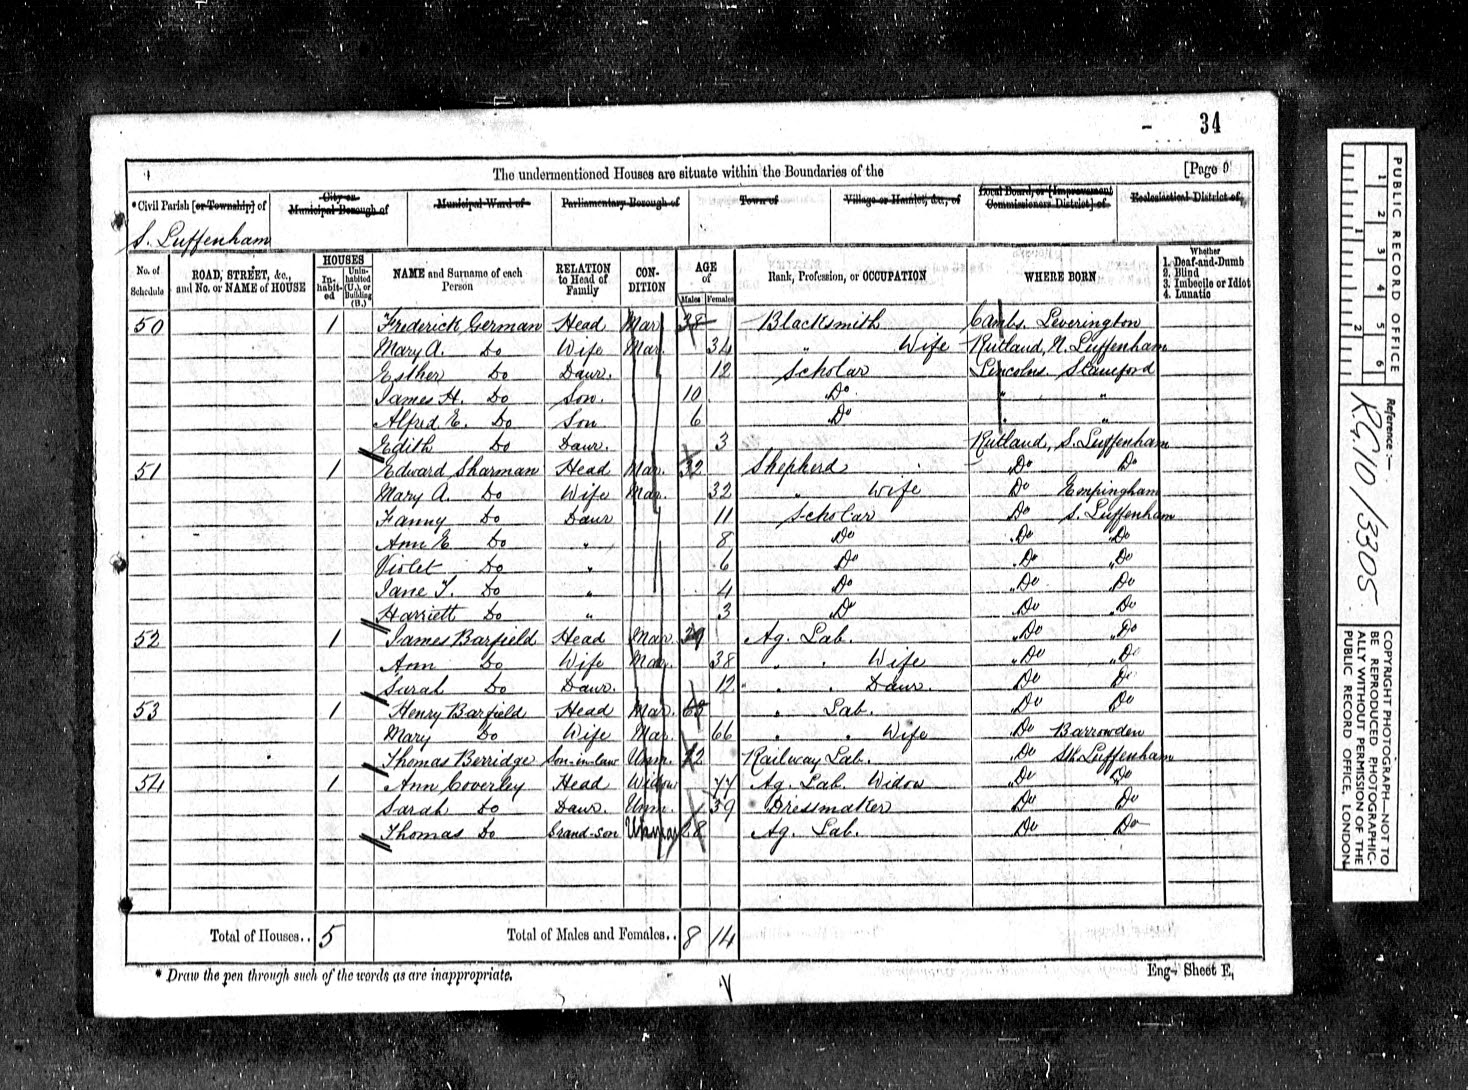 34
The undermentioned Houses are situate within the Boundaries of the [Page 9
*Civil Parish [or Township] of
City or Municipal Borough of
Municipal Ward of
Parliamentary Borough of
Town of
Village or Hamlet, &c., of
Local Board, or [Improvement Commissioners District] of
Ecclesiastical District of
S. Luffenham
No. of Schedule
ROAD, STREET, &c., and No. or NAME of HOUSE
HOUSES
In-habit-ed
Unin-habited (U.), or Building (B.)
NAME and Surname of each Person
RELATION to Head of Family
CON-DITION
AGE of
Males Females
Rank, Profession, or OCCUPATION
WHERE BORN
Whether
1. Deaf-and-Dumb
2. Blind
3. Imbecile or Idiot
4. Lunatic
50 1 Frederick German Head Mar. 38 Blacksmith Cambs. Leverington
Mary A. Do Wife Mar. 34 " Wife Rutland, N. Luffenham
Esther Do Daur. 12 Scholar Lincolns Stamford
James H. Do Son. 10 Do " "
Alfred E. Do Son 6 Do " "
Edith Do Daur. 3 Rutland, S. Luffenham
51 1 Edward Sharman Head Mar. 32 Shepherd Do Do
Mary A. Do Wife Mar. 32 " Wife Do Empingham
Fanny Do Daur 11 Scholar Do S. Luffenham
Ann E Do " 8 Do Do Do
Violet Do " 6 Do Do Do
Jane T. Do " 4 Do Do Do
Harriett Do " 3 Do Do Do
52 1 James Barfield Head Mar. 39 Ag. Lab. Do Do
Ann Do Wife Mar. 38 " " Wife Do Do
Sarah Do Daur. 12 " " Daur. Do Do
53 1 Henry Barfield Head Mar. " Lab. Do Do
Mary Do Wife Mar. 66 " " Wife Do Barrowden
Thomas Berridge Son-in-law Unm. Railway Lab. Do Sth. Luffenham
54 1 Ann Coverley Head Widow 77 Ag. Lab. Widow Do Do
Sarah Do Daur. Unm. 39 Dressmaker Do Do
Thomas Do Grand-son 18 Ag. Lab. Do Do
Total of Houses.. 5 Total of Males and Females.. 8 14
* Draw the pen through such of the words as are inappropriate.
Eng- Sheet E,
PUBLIC RECORD OFFICE
1 2 3 4 5 6
1 2
Reference :-
RG10/3305
COPYRIGHT PHOTOGRAPH-NOT TO BE REPRODUCED PHOTOGRAPHIC-ALLY WITHOUT PERMISSION OF THE PUBLIC RECORD OFFICE, LONDON